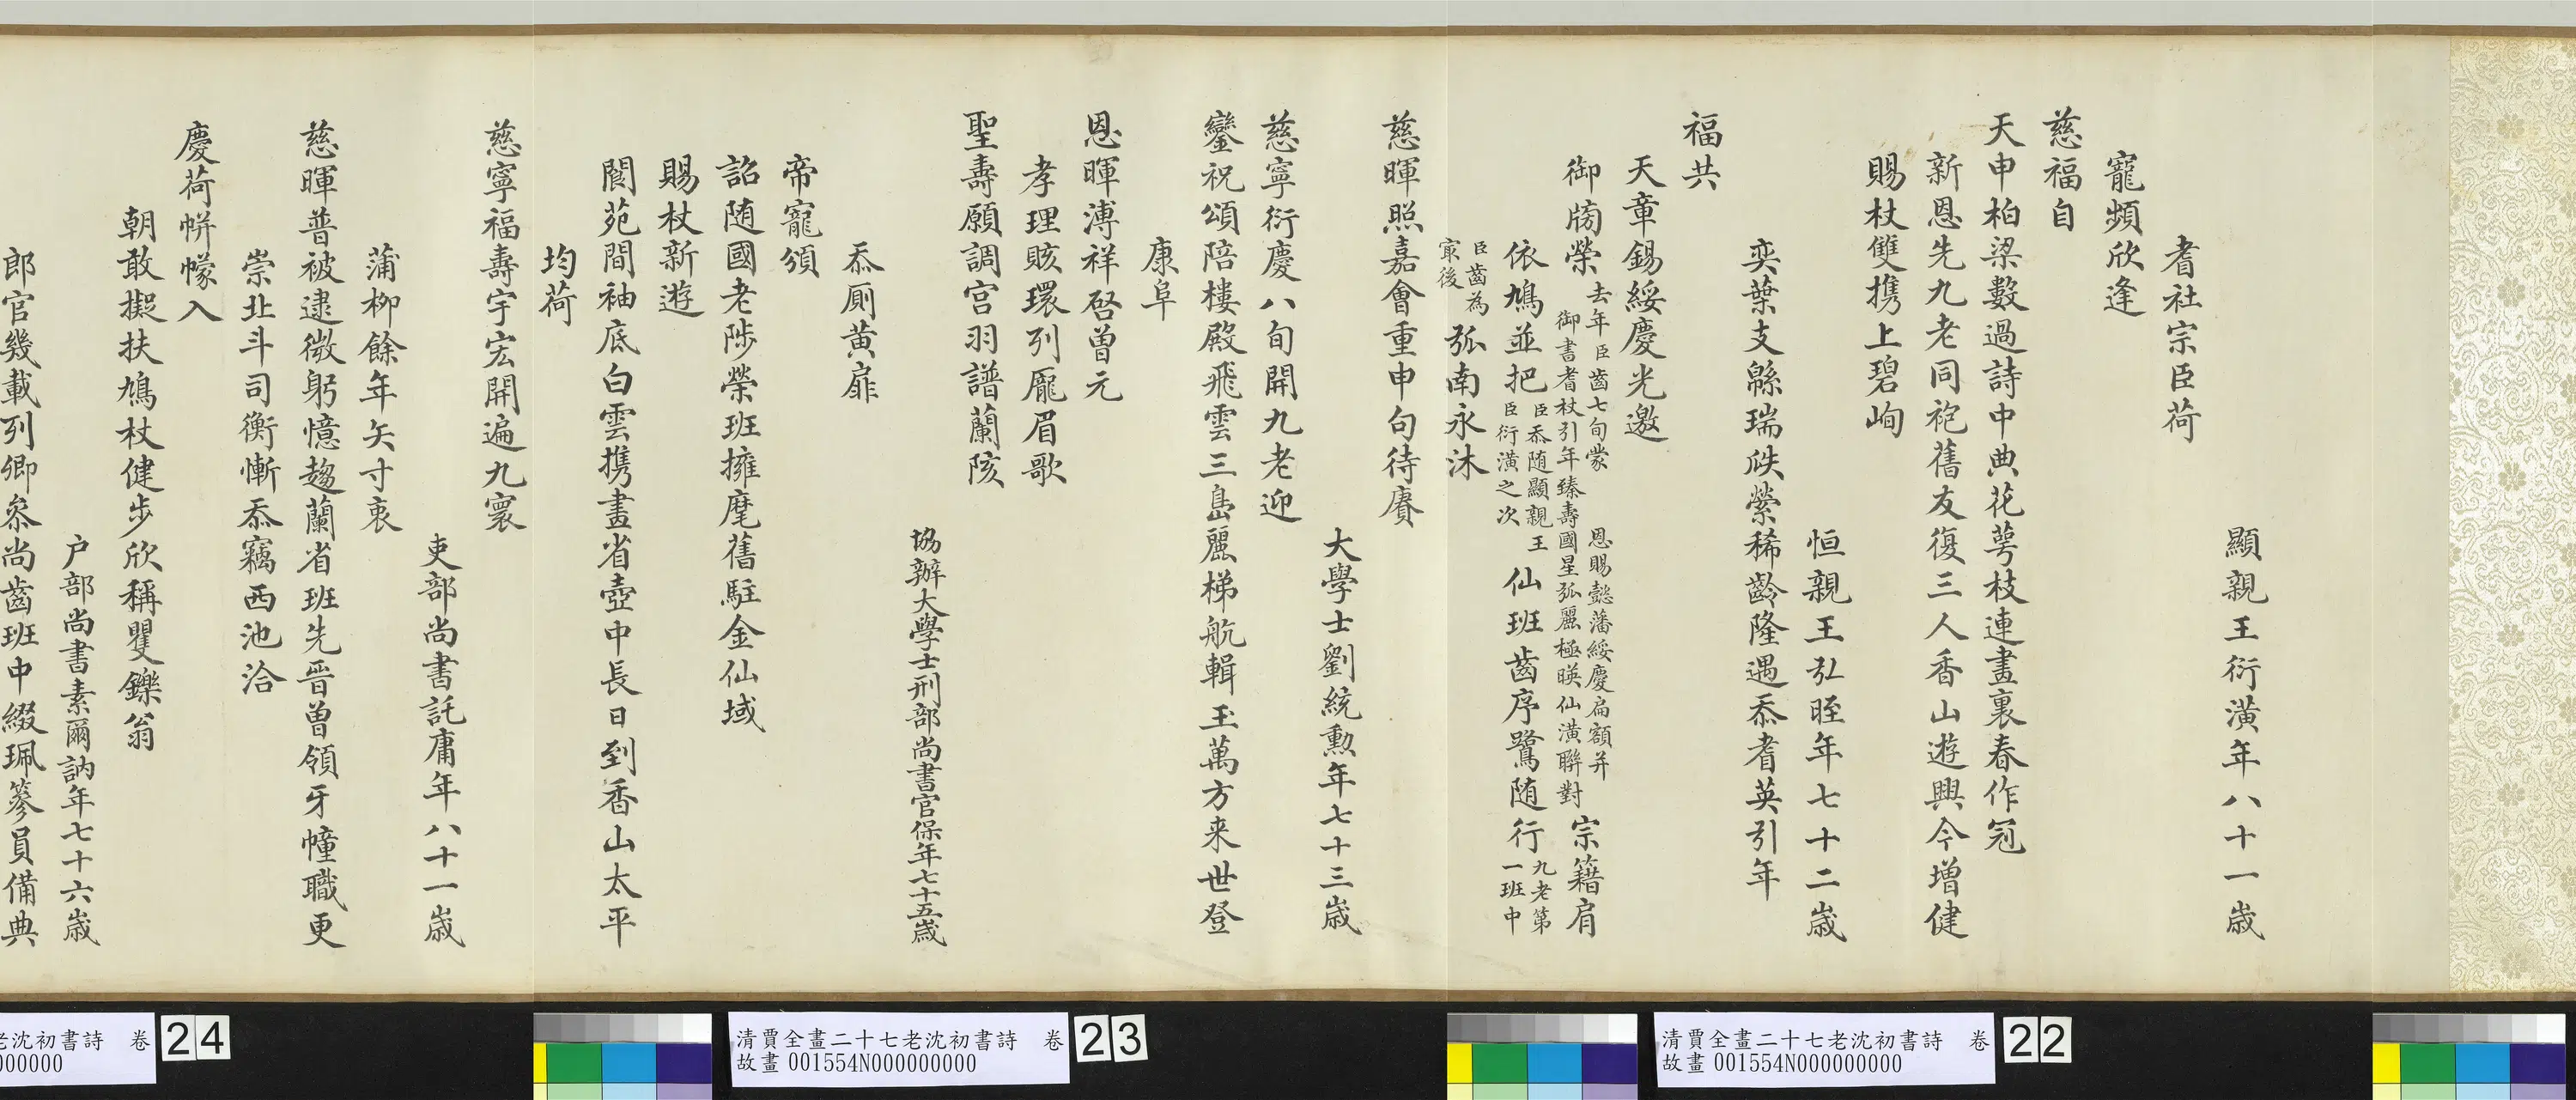 顯親王衍潢年八十一歲
耆社宗臣荷
寵頻欣逢
慈福自
天申柏梁數過詩中典花萼枝連畫裏春作冠
新恩先九老同袍舊友復三人香山遊興今增健
賜杖雙攜上碧峋
恒親王弘晊年七十二歲
奕葉支緜瑞瓞縈稀齡隆遇忝耆英引年
福共
天章錫綏慶光邀
御牓榮
去年臣齒七旬蒙 恩賜懿藩綏慶扁額并
御書耆杖引年臻壽國星弧麗極暎仙潢聯對
宗籍肩
依鳩並把
臣忝随顯親王
臣衍潢之次
仙班齒序鷺随行
九老第
一班中
臣齒為
冣後
弧南永沐
慈暉照嘉會重申句待賡
大學士劉統勲年七十三歲
慈寧衍慶八旬開九老迎
鑾祝頌陪樓殿飛雲三島麗梯航輯玉萬方来世登
康阜
恩暉溥祥啓曾元
孝理賅環列龎眉歌
聖壽願調宫羽譜蘭陔
協辦大學士刑部尚書官保年七十五歲
忝厠黄扉
帝寵頒
詔随國老陟榮班擁麾舊駐金仙域
賜杖新遊
閬苑間袖底白雲攜畫省壺中長日到香山太平
均荷
慈寧福壽宇宏開遍九寰
吏部尚書託庸年八十一歲
蒲柳餘年矢寸衷
慈暉普被逮微躬憶趨蘭省班先晉曽領牙幢職更
崇北斗司衡慚忝竊西池洽
慶荷帡幪入
朝敢擬扶鳩杖健步欣稱矍鑠翁
户部尚書素爾訥年七十六歲
郎官幾載列卿叅尚齒班中綴珮篸員備典
清賈全畫二十七老沈初書詩 卷 22
故畫 001554N000000000
清賈全畫二十七老沈初書詩 卷 23
故畫 001554N000000000
老沈初書詩 卷 24
000000